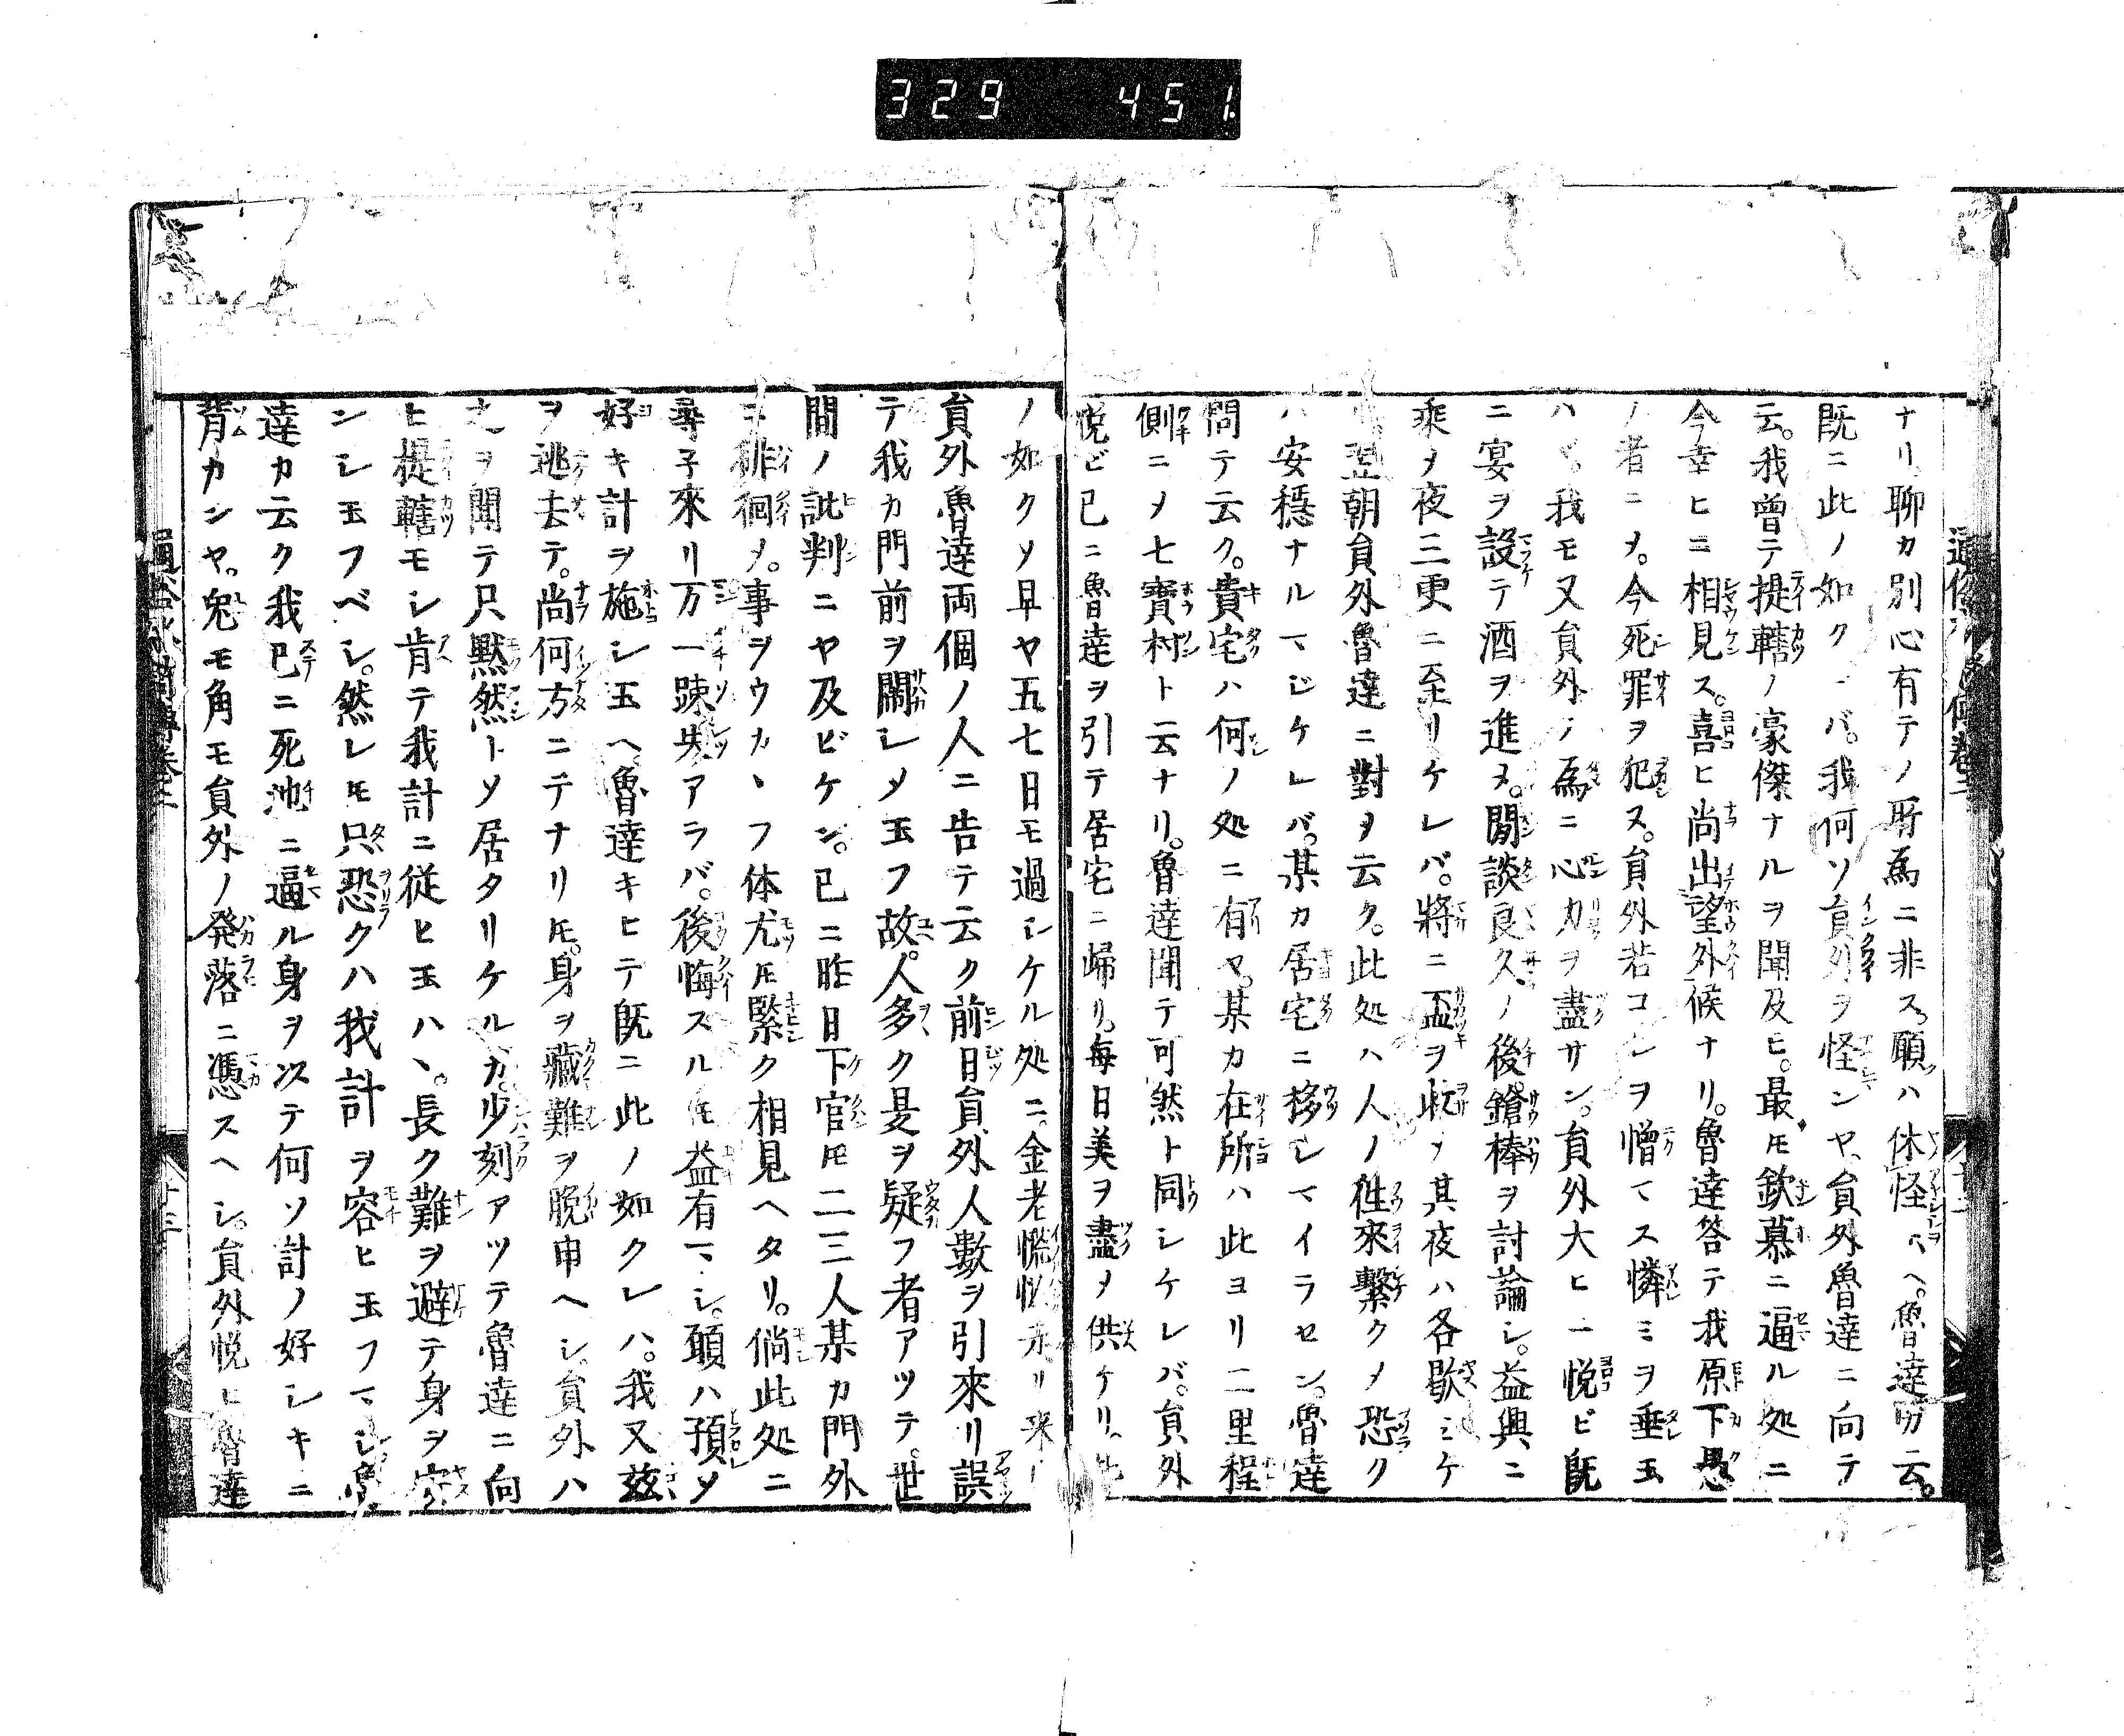 329 451
ナリ聊カ別心有テノ所為ニ非ス願ハ休怪ヘ。魯達曰云。
既ニ此ノ如クンバ。我何ソ員外ヲ怪ンヤ。員外魯達ニ向テ
云。我曽テ提轄ノ豪傑ナルヲ聞及ヒ。最モ欽慕ニ逼ル処ニ
今幸ヒニ相見ス。喜ヒ尚出望外候ナリ。魯達答テ我原下愚
ノ者ニメ。今死罪ヲ犯ス。員外若コレヲ憎マス憐ミヲ垂玉
ハヾ。我モ又員外ノ為ニ心力ヲ盡サン。員外大ヒニ悦ビ既
ニ宴ヲ設テ酒ヲ進メ。閒談良久ノ後。鎗棒ヲ討論シ。益興ニ
乘メ夜三更ニ至リケレバ。將ニ盃ヲ收メ其夜ハ各歇ミケ
リ。翌朝員外魯達ニ對ヲ云ク。此処ハ人ノ徃來繋クメ恐ク
ハ安穏ナルマジケレバ。某カ居宅ニ移シマイラセン。魯達
問テ云ク。貴宅ハ何ノ処ニ有ヤ。某カ在所ハ此ヨリ二里程
側ニメ七寳村ト云ナリ。魯達聞テ可然ト同シケレバ。員外
悦ビ已ニ魯達ヲ引テ居宅ニ帰リ。毎日美ヲ盡メ供ケリ。
ノ如クソ早ヤ五七日モ過シケル処ニ。金老リ来
員外魯達両個ノ人ニ告テ云ク前日員外人數ヲ引來リ誤
テ我カ門前ヲ閙シメ玉フ故。人多ク是ヲ疑フ者アツテ。世
間ノ訛判ニヤ及ビケン。已ニ昨日下官モ二三人某カ門外
ヲ徘徊メ。事ヲウカヽフ体尤モ緊ク相見ヘタリ。倘此処ニ
尋子來リ万一踈失アラバ。後悔スルモ益有マシ。願ハ預メ
好キ計ヲ施シ玉ヘ魯達キヒテ既ニ此ノ如クレハ。我又茲
ヲ逃去テ。尚何方ニテナリモ。身ヲ藏難ヲ脱申ヘシ。員外ハ
之ヲ聞テ只黙然トソ居タリケルカ。少刻アツテ魯達ニ向
ヒ提轄モシ肯テ我計ニ従ヒ玉ハヽ。長ク難ヲ避テ身ヲ安
ンシ玉フベシ。然レモ只恐クハ我計ヲ容ヒ玉フマシ魯
達カ云ク我已ニ死地ニ逼ル身ヲ以テ何ソ計ノ好シキニ
背カンヤ。兔モ角モ員外ノ発落ニ馮スヘシ。員外悦ヒ魯達